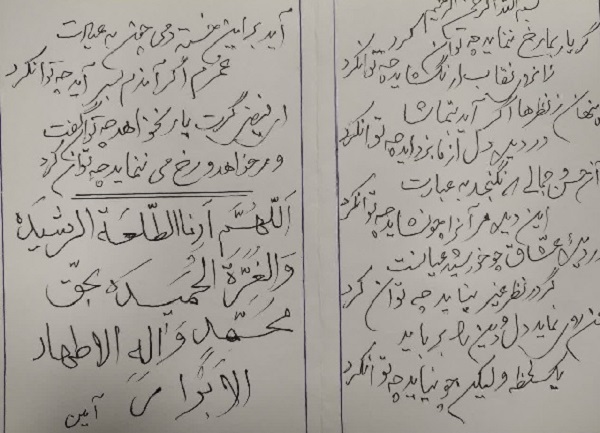 بسم الله الرحمن الرحیم
گر یار بما رخ ننماید چه توان کرد
زان رو نقاب ار نگشاید چه توانکرد
پنهان ز نظرها اگر آید بتماشا
در دیده دل از ما بزداید چه توانکرد
آن حسن و جمالی که نگنجد به عبارت
این دیده مر آنرا چو نشاید چه توانکرد
در دیده عشاق چو خورشید عیانست
گر در نظر غیر نیاید چه توان کرد
روی نماید دل و دین را برباید
یک لحظه ولیکن چو نپاید چه توانکرد
آید بر این خسته دمی چون به عیادت
عمرم اگر آندم بسر آید چه توانکرد
ای فیض گرت یار نخواهد چه توان گفت
ور خواهد و رخ می ننماید چه توان کرد
اَللّهُمَّ اَرِنا الطَّلْعَةَ الرَّشیدَة
وَالْغُرَّةَ الْحَمیدَة بحقّ
مُحَمَّدٍ وَآلِهِ الاطهار
الاَبْرار
آمین